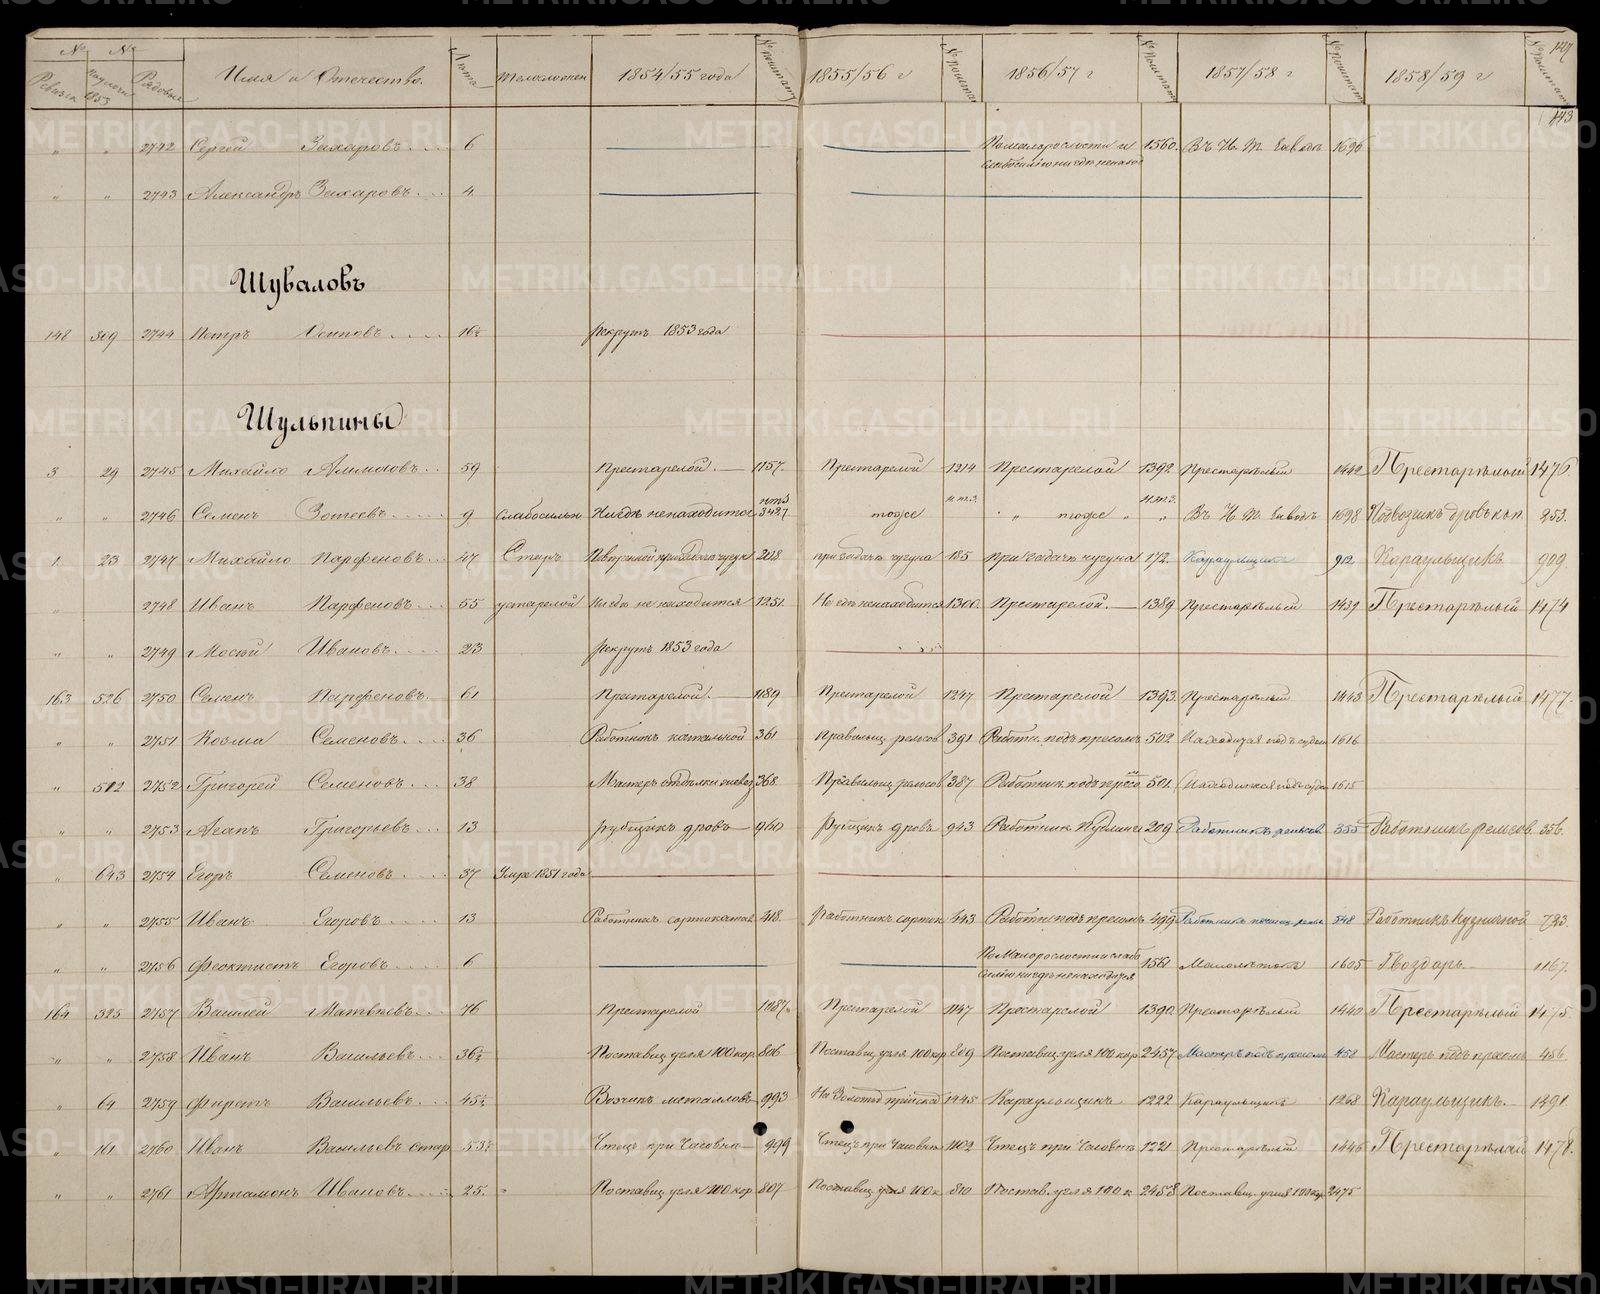 № № Имя и Отечество. Лета Телосложен 1854/55 года № по штату 1855/56 г № по штату 1856/57 г № по штату 1857/58 г № по штату 1858/59 г № по штату 147
Ревизск 1853 Рядовые
143
" " 2742 Сергей Захаровъ 6 По малорослости и 1560. Въ Н. Т. Заводъ 1696
слабосилію нигде ненаход
" " 2743 Александръ Захаровъ 4
Шуваловъ
148 509 2744 Петръ Осиповъ 16½ Рекрутъ 1853 года
Шульпины
3 29 2745 Михайло 59 Престарелой. 1157. Престарелой 1214 Престарелой 1392 Престарѣлый 1442 Престарѣлый 1476
" " 2746 Семенъ Зотеевъ 9 слабосильн Нигде ненаходится 3427 тоже " тоже " " Въ Н. Т. Заводъ 1698 Подвозщикъ дровъ 253.
1 23 2747 Михайло Парфеновъ 47 Старъ 208 при задаче чугуна 185 При задаче чугуна 172. Караульщикъ 912 Караульщикъ 909.
" 2748 Иванъ Парфеновъ 55 устарелой Нигде не находится 1251. Нигде ненаходится 1300. Престарелой. 1389 Престарѣлый 1439 Престарѣлый 1474
" " 2749 Мосей Ивановъ 23 Рекрутъ 1853 года
163 526 2750 Семенъ Парфеновъ. 61 Престарелой. 1189 Престарелой 1247 Престарелой 1393 Престарѣлый 1443 Престарѣлый 1477.
" " 2751 Козма Семеновъ 36 Работникъ катальной 361 Правильщ рельсов 391 Работн. подъ пресомъ 502 Находится подъ судом 1616
" 512 2752 Григорей Семеновъ 38 Мастеръ отделки 368 Правильщ рельсов 387 Работник подъ пресо 501. Находится подъ судом 1615
" " 2753 Агапъ Григорьевъ 13 Рубщикъ дровъ 960 Рубщикъ дровъ 943 Работник Пудлинг 209 Работникъ рельсов 355 Работникъ рельсов 356.
" 643 2754 Егоръ Семеновъ 37 Умре 1851 года
" " 2755 Иванъ Егоровъ 13 Работникъ сортокатал 418. Работникъ сорток 443 Работн подъ пресомъ 499 Работникъ 348 Работникъ Кузничной 723.
" " 2756 Феоктистъ Егоровъ 6 По Малорослости и слабо 1561 Малолетокъ 1605 Гвоздарь 1167.
силію нигде ненаходится
164 325 2757 Василей Матвеевъ 76 Престарелой 1087. Престарелой 1147 Престарелой 1390 Престарѣлый 1440 Престарѣлый 1475.
" " 2758 Иванъ Васильевъ 36½ Поставщ угля 100 кор 806 Поставщ угля 100 кор 809 Поставщ угля 100 кор 2457 Мастеръ подъ пресомъ 458 Мастеръ подъ пресомъ 456.
" 64 2759 Фирстъ Васильевъ 45½ Возчикъ металловъ 993 На Золотой прииска 1445 Караульщикъ 1222 Караульщикъ 1268 Караульщикъ. 1291.
" 161 2760 Иванъ Васильевъ стар 53½ Чтецъ при Часовне 999 Чтецъ при Часовне 1102 Чтецъ при Часовне 1221 Престарѣлый 1446 Престарѣлый 1478.
" " 2761 Артамонъ Ивановъ 25. Поставщ угля 100 кор 807 Поставщ угля 100 к 810 Постав. угля 100 к 2458 Поставщ. угля 100 кор 2475
METRIKI.GASO-URAL.RU